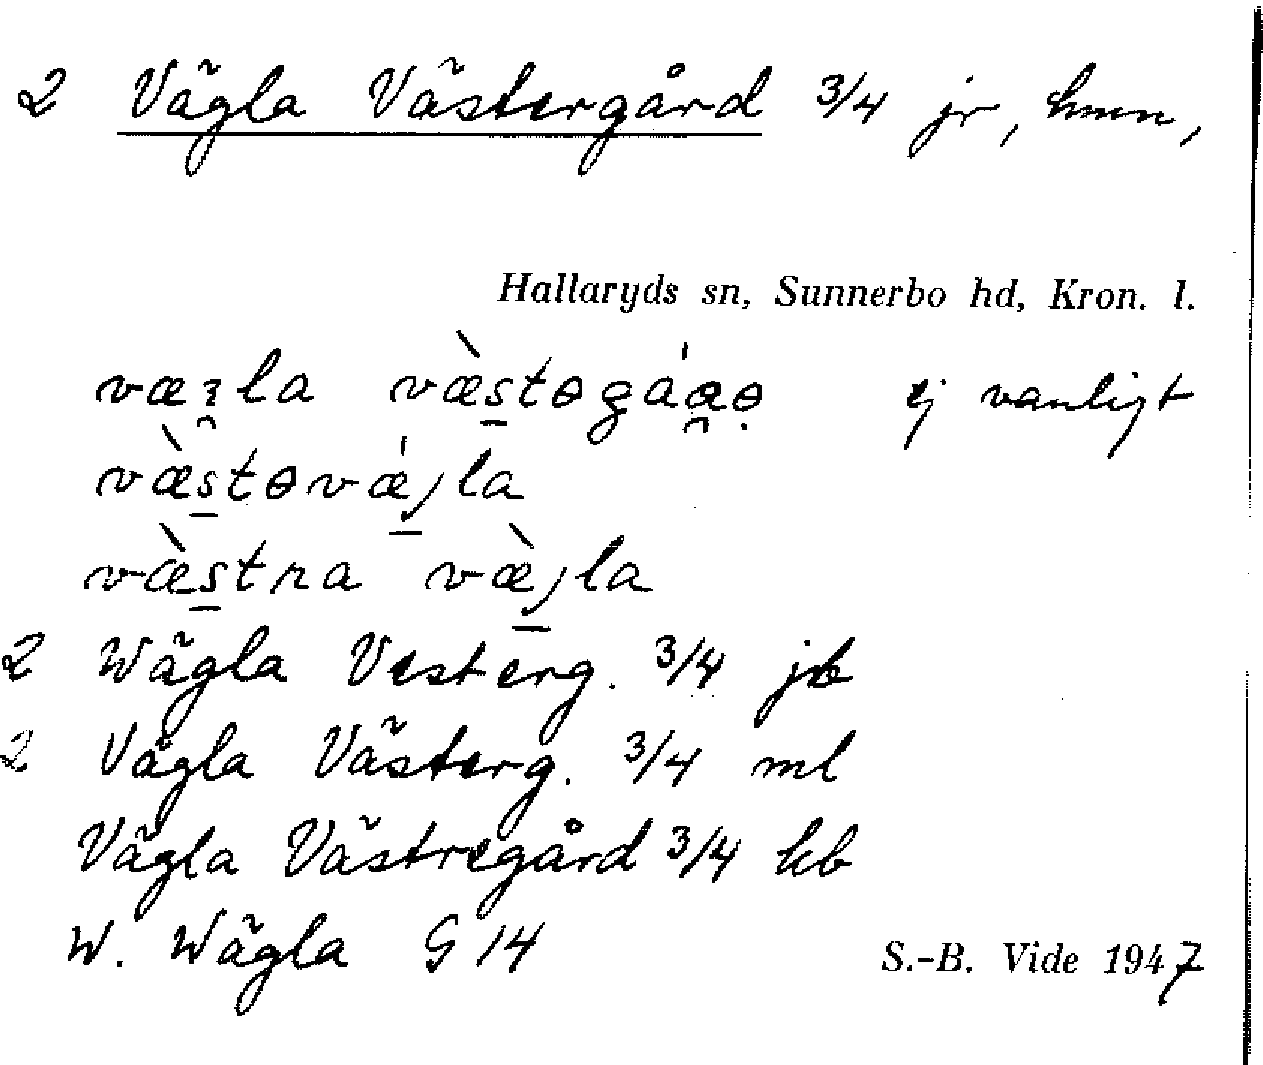 2 Vägla Västergård 3/4 jr, hmn,
Hallaryds sn, Sunnerbo hd, Kron. l.
ej vanligt
væ̀s̠tɵvǽj̠la
væ̀s̠tra væ̀j̠la
2 Wägla Vesterg. 3/4 jb
2 Vägla Västerg. 3/4 ml
Vägla Västregård 3/4 hb
W. Wägla G 14
S.-B. Vide 1947